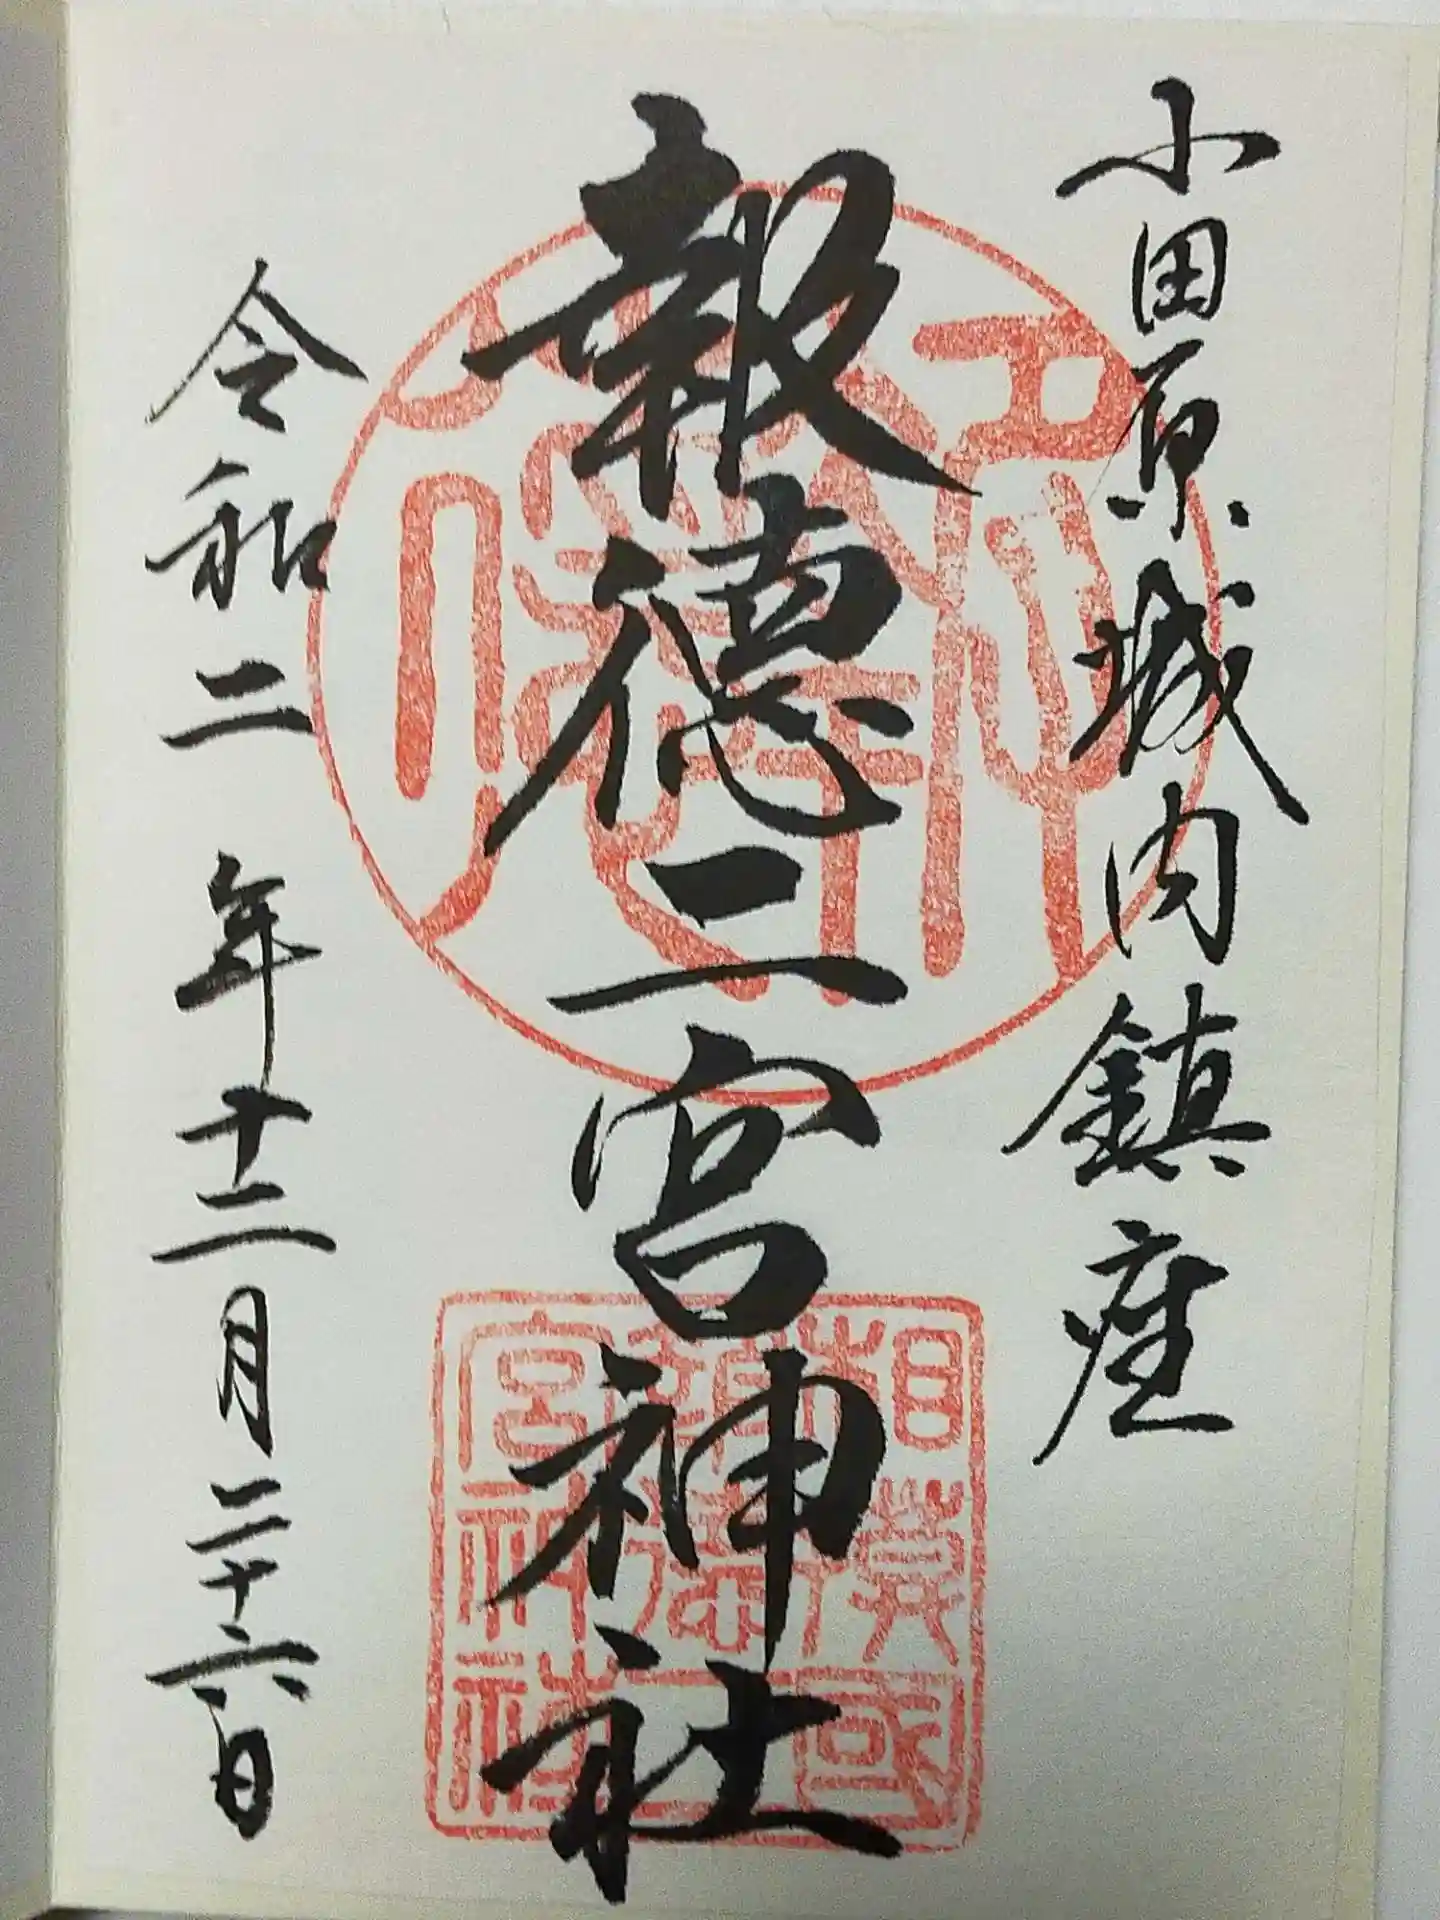 小田原城内鎮座
報徳二宮神社
令和二年十二月二十六日
相模國
報徳二
宮神社